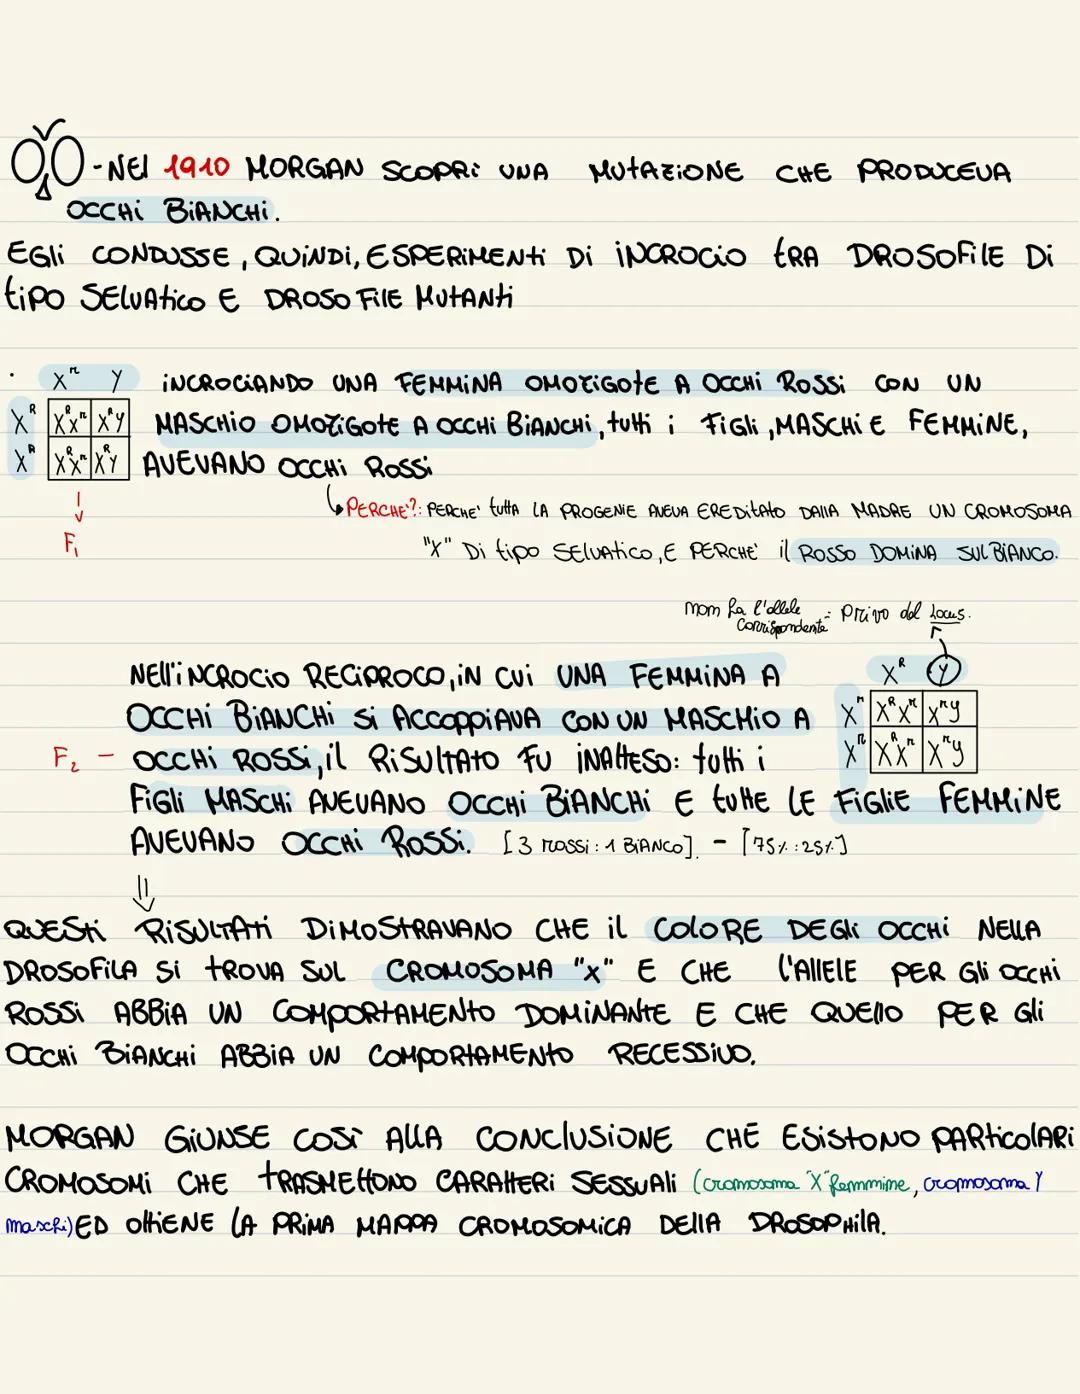 - NEl 1910 MORGAN SCOPRì UNA MUTAZIONE CHE PRODUCEVA
OCCHI BIANCHI.
EGLI CONDUSSE, QUINDI, ESPERIMENTI DI INCROCIO tRA DROSOFILE DI
tIPO SELVATICO E DROSOFILE MUTANTI
X^r Y
X^R X^R X^r X^R Y
X^R X^R X^r X^R Y
F₁
INCROCIANDO UNA FEMMINA OMOZIGOTE A OCCHI ROSSI CON UN
MASCHIO OMOZIGOTE A OCCHI BIANCHI, tutti i FIGLI, MASCHI E FEMMINE,
AVEVANO OCCHI ROSSI
PERCHE'?: PERCHE' tuttA LA PROGENIE AVEVA EREDITATO DALLA MADRE UN CROMOSOMA
"X" DI tipo SELVATICO, E PERCHE' il ROSSO DOMINA SUL BIANCO.
non ha l'allele corrispondente - privo del Locus.
NELL'INCROCIO RECIPROCO, IN CUI UNA FEMMINA A
OCCHI BIANCHI SI ACCOPPIAVA CON UN MASCHIO A
F₂ - OCCHI ROSSI, il RISULTATO FU INATTESO: tutti i
FIGLI MASCHI AVEVANO OCCHI BIANCHI E tutte LE FIGLIE FEMMINE
AVEVANO OCCHI ROSSI. [3 rossi : 1 BIANCO]. - [75% : 25%]
X^R Y
X^r X^R X^r X^r y
X^r X^R X^r X^r y
QUESTI RISULTATI DIMOSTRAVANO CHE il COLORE DEGLI OCCHI NELLA
DROSOFILA SI tROVA SUL CROMOSOMA "X" E CHE L'ALLELE PER GLI OCCHI
ROSSI ABBIA UN COMPORTAMENTO DOMINANTE E CHE QUELLO PER GLI
OCCHI BIANCHI ABBIA UN COMPORTAMENTO RECESSIVO.
MORGAN GIUNSE COSÌ ALLA CONCLUSIONE CHE ESISTONO PARTICOLARI
CROMOSOMI CHE tRASMETTONO CARATTERI SESSUALI (cromosoma "X" femmine, cromosoma Y
maschi) ED OTTIENE LA PRIMA MAPPA CROMOSOMICA DELLA DROSOPHILA.